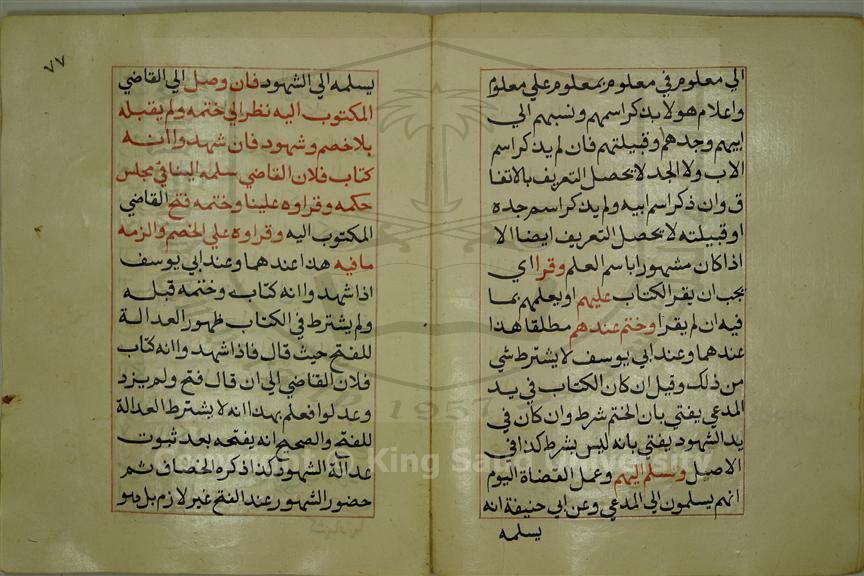 الي معلوم في معلوم بمعلوم علي معلوم
واعلام هولا بذكر اسمهم ونسبهم الي
ابيهم وجدهم وقبيلتهم فان لم يذكر اسم
الاب ولا الجد لا يحصل التعريف بالاتفا
ق وان ذكر اسم ابيه ولم يذكر اسم جده
او قبيلته لا يحصل التعريف ايضا الا
اذا كان مشهورا باسم العلم وقرا اي
يجب ان يقرا الكتاب عليهم او يعلمهم بما
فيه ان لم يقرا وختم عندهم مطلقا هذا
عندهما وعند ابي يوسف لا يشترط شي
من ذلك وقيل ان كان الكتاب في يد
المدعي يفتي بان الختم شرط وان كان في
يد الشهود يفتي بانه ليس بشرط كذا في
الاصل وسلم اليهم وعمل القضاة اليوم
انهم يسلمون الي المدعي وعن ابي حنيفة انه
يسلمه
٧٧
يسلمه الي الشهود فان وصل الي القاضي
المكتوب اليه نظر الي ختمه ولم يقبله
بلا خصم وشهود فان شهدوا انه
كتاب فلان القاضي سلمه الينا في مجلس
حكمه وقراوه علينا وختمه فتح القاضي
المكتوب اليه وقراوه علي الخصم والزمه
ما فيه هذا عندهما وعند ابي يوسف
اذا شهدوا انه كتابه وختمه قبله
ولم يشترط في الكتاب ظهور العدالة
للفتح حيث قال فاذا شهدوا انه كتاب
فلان القاضي الي ان قال فتح ولم يزد
وعدلوا فعلم بهذا انه لا يشترط العدالة
للفتح والصحيح انه يفتحه بعد ثبوت
عدالة الشهود كذا ذكره الخصاف ثم
حضور الشهور عند الفتح غير لازم بل هو